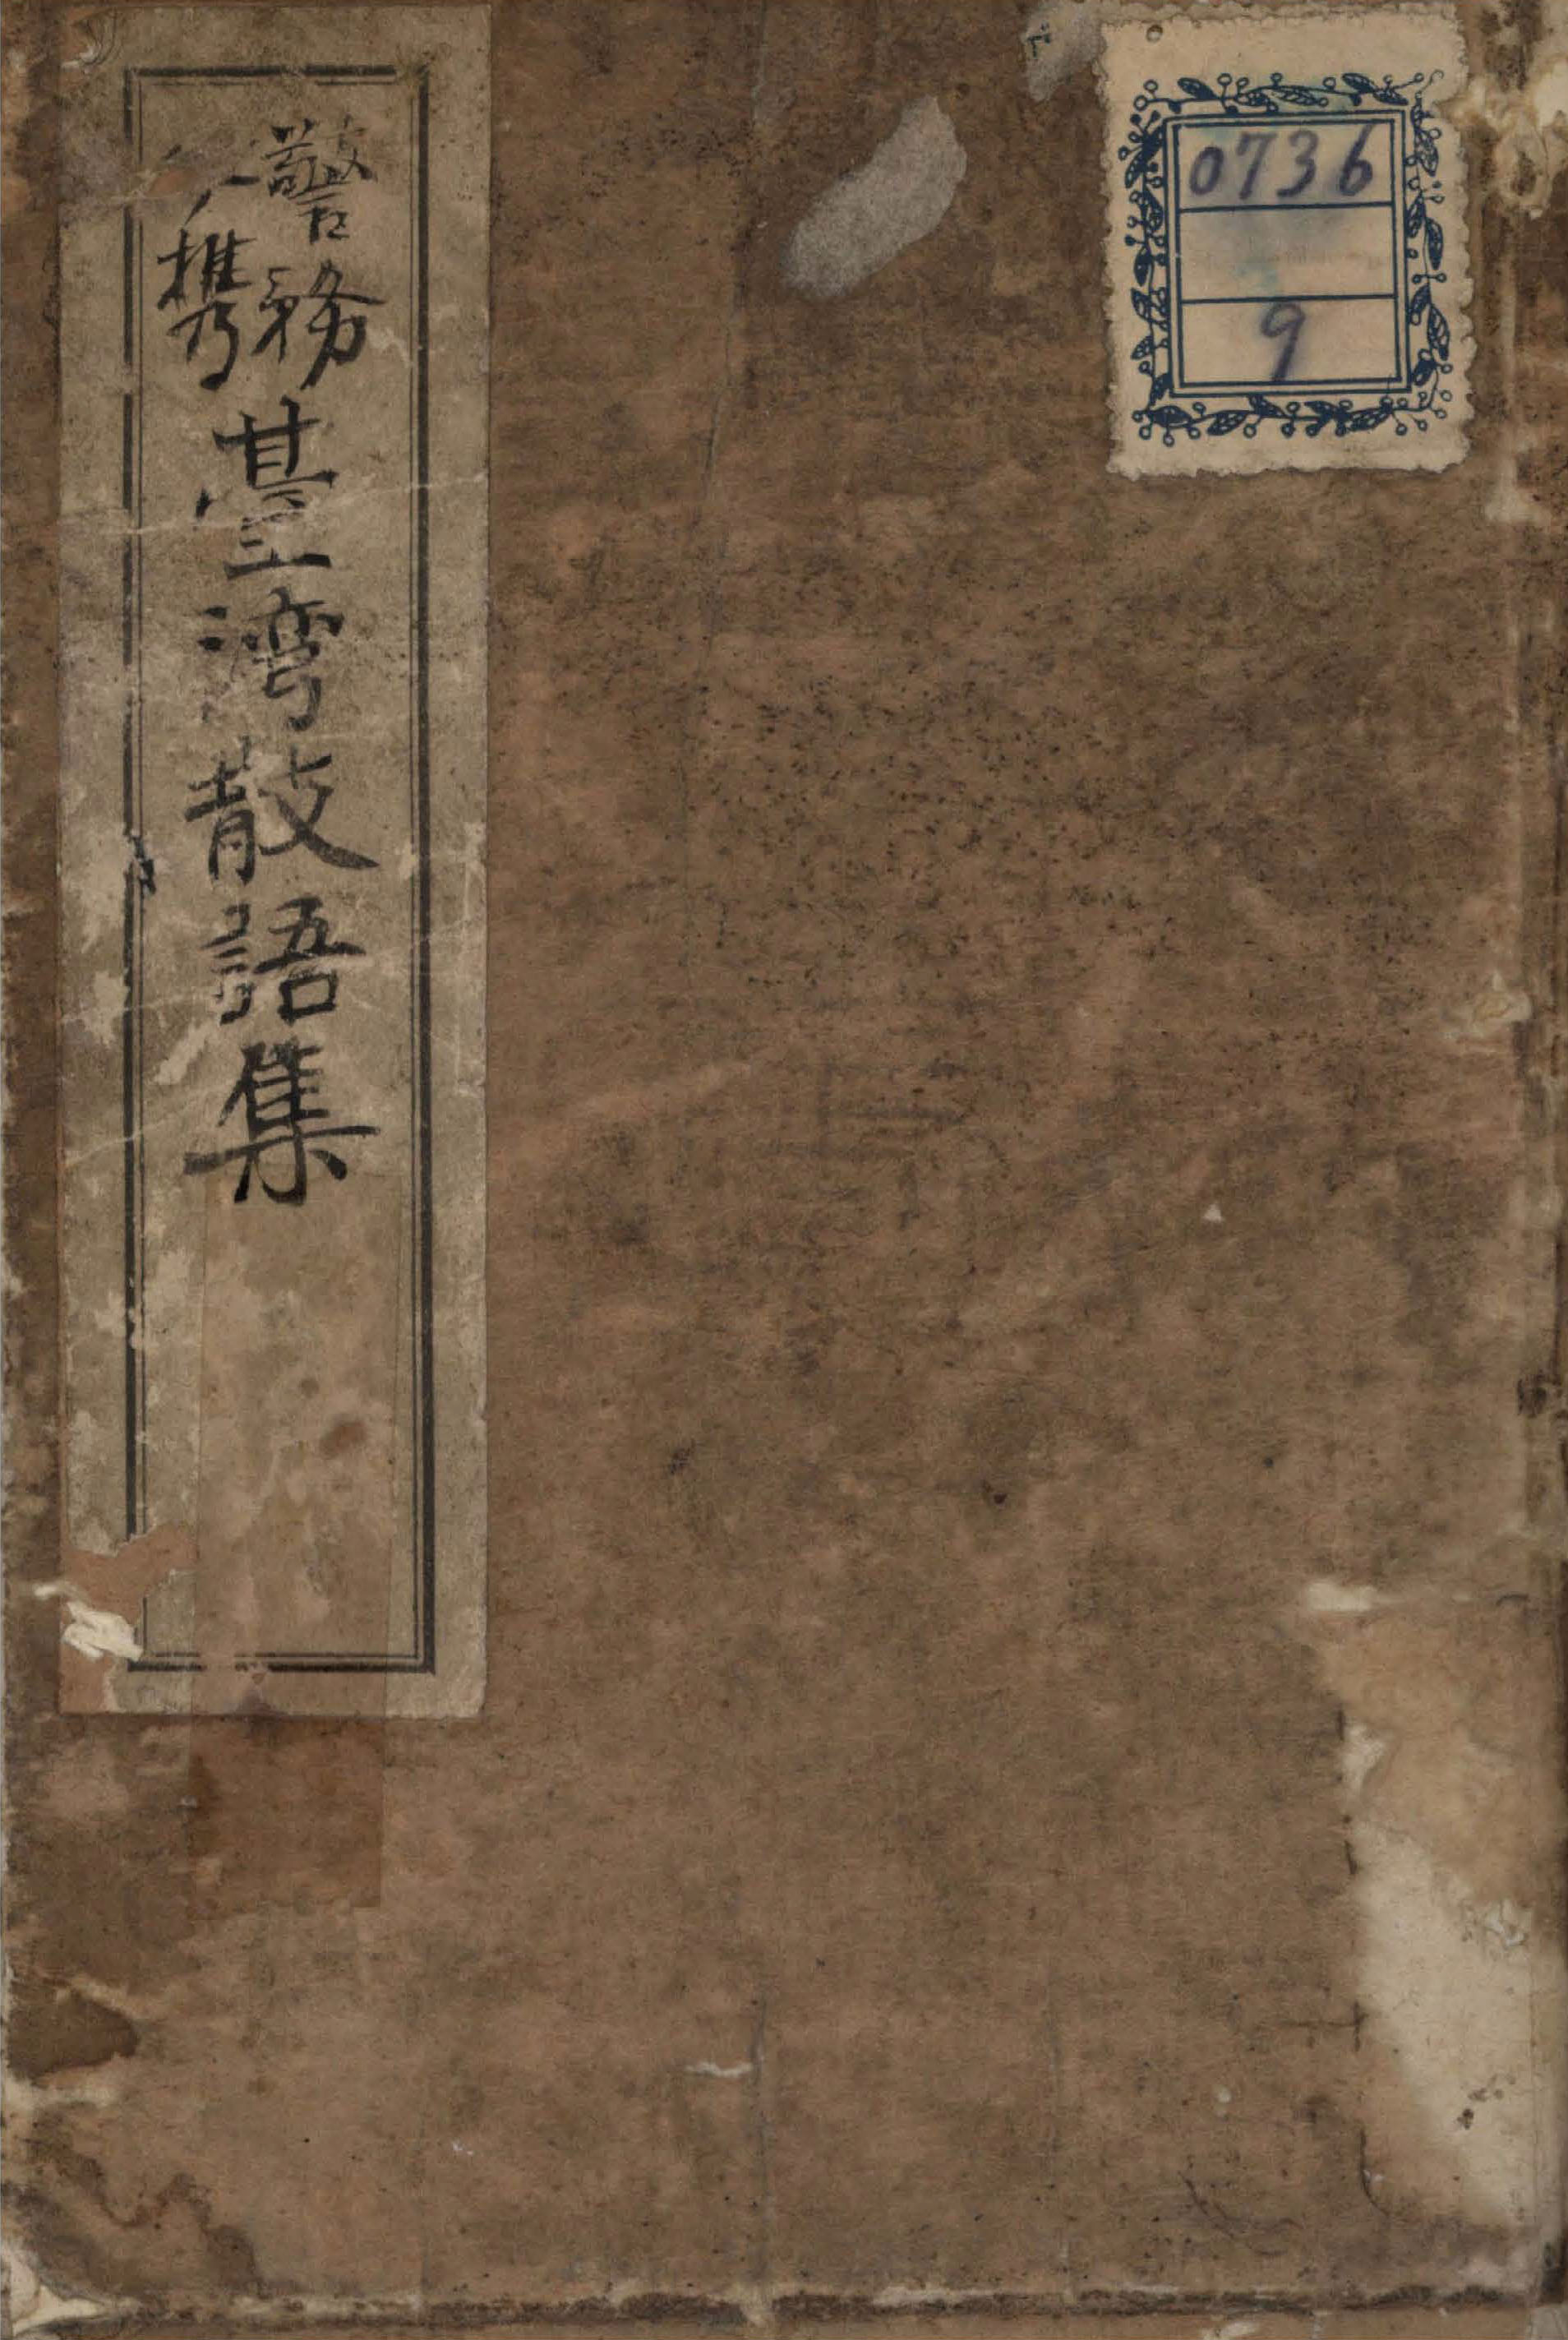 警務
必携
臺湾散語集
0736
9